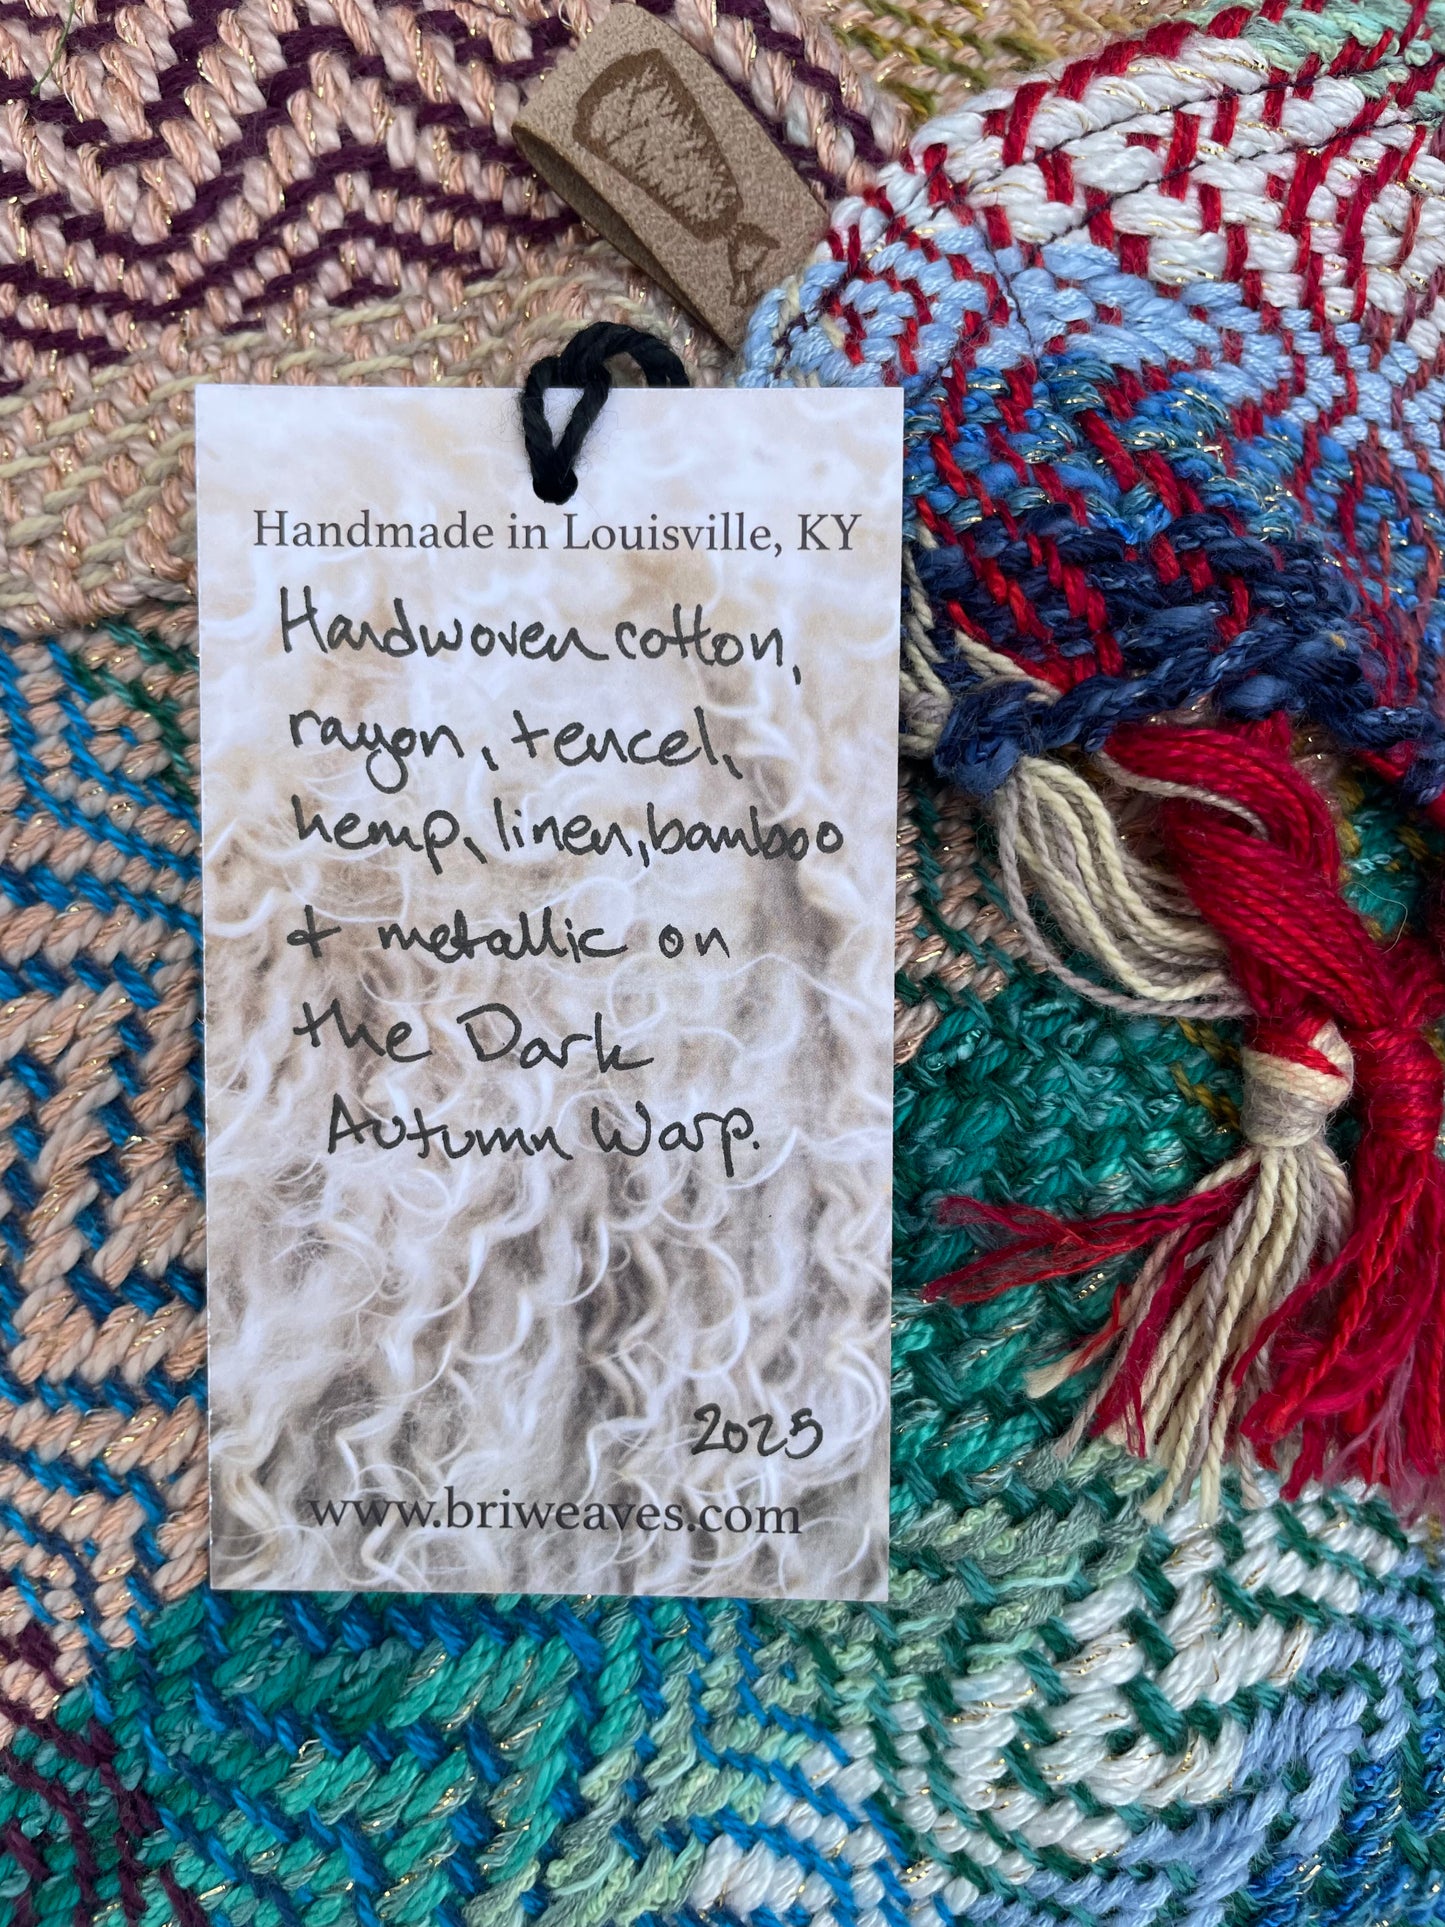 Handmade in Louisville, KY
Handwoven cotton,
rayon, tencel,
hemp, linen, bamboo
& metallic on
the Dark
Autumn Warp.
2025
www.briweaves.com